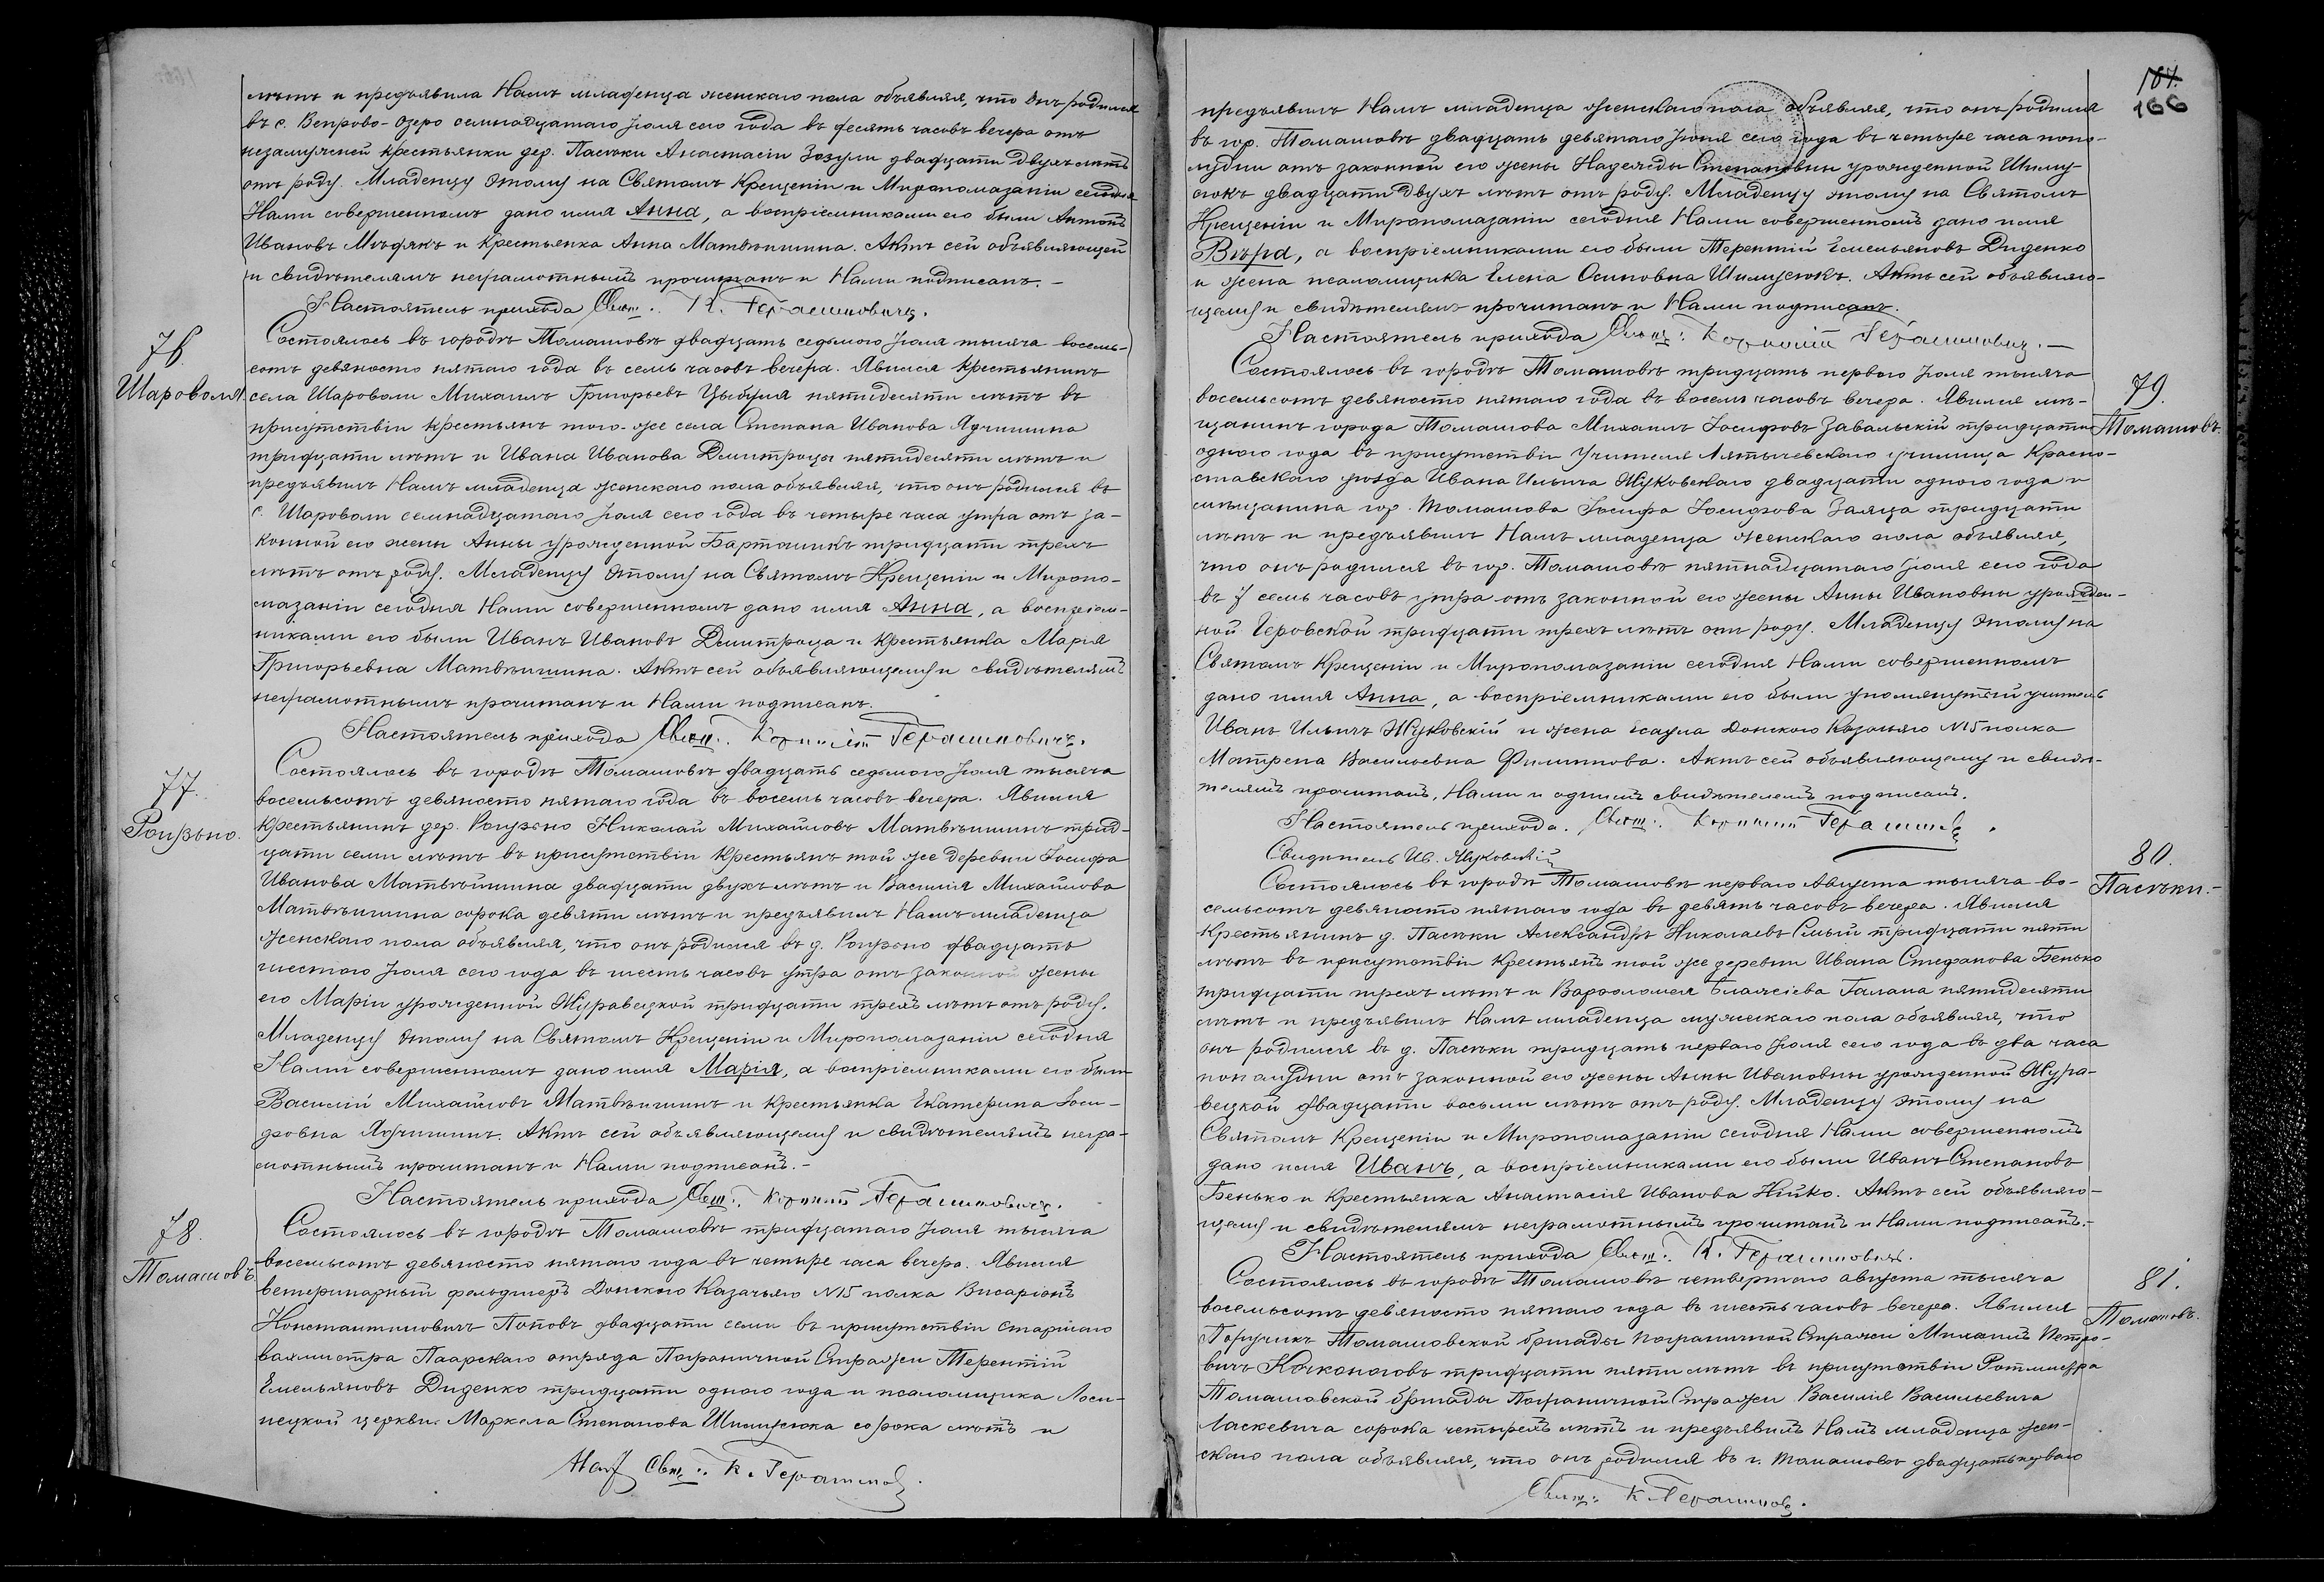 лѣтъ и предъявила Намъ младенца женскаго пола объявляя, что онъ родился
въ с. Вепрово-Озеро семнадцатаго Іюля сего года въ десять часовъ вечера отъ
незамужней крестьянки дер. Пасѣки Анастасіи Зозули двадцати двухъ лѣтъ
отъ роду. Младенцу этому на Святомъ Крещеніи и Миропомазаніи сегодня
Нами совершенномъ дано имя Анна, а воспріемниками его были Антонъ
Ивановъ и крестьянка Анна Матвѣишина. Актъ сей объявляющей
и свидѣтелямъ неграмотнымъ прочитанъ и Нами подписанъ.-
Настоятель прихода Свящ. К. Герашиновичъ.
76.
Шароволя.
Состоялось въ городѣ Томашовѣ двадцать седьмого Іюля тысяча восемь-
сотъ девяносто пятаго года въ семь часовъ вечера. Явился крестьянинъ
села Шароволи Михаилъ Григорьевъ Цыбуля пятидесяти лѣтъ въ
присутствіи крестьянъ того-же села Степана Иванова Ядчишина
тридцати лѣтъ и Ивана Иванова Дмитроцы пятидесяти лѣтъ и
предъявилъ Намъ младенца женскаго пола объявляя, что онъ родился въ
с. Шароволи семнадцатаго Іюля сего года въ четыре часа утра отъ за-
конной его жены Анны урожденной Бартошикъ тридцати трехъ
лѣтъ отъ роду. Младенцу этому на Святомъ Крещеніи и Миропо-
мазаніи сегодня Нами совершенномъ дано имя Анна, а воспріем-
никами его были Иванъ Ивановъ Дмитроца и крестьянка Марія
Григорьевна Матвѣишина. Актъ сей объявляющему и свидѣтелямъ
неграмотнымъ прочитанъ и Нами подписанъ.
Настоятель прихода Свящ. Корнилій Герашиновичъ.
77.
Рогузьно.
Состоялось въ городѣ Томашовѣ двадцать седьмого Іюля тысяча
восемьсотъ девяносто пятаго года въ восемь часовъ вечера. Явился
крестьянинъ дер. Рогузьно Николай Михайловъ Матвѣишинъ трид-
цати семи лѣтъ въ присутствіи крестьянъ той же деревни Іосифа
Иванова Матвѣйшина двадцати двухъ лѣтъ и Василія Михайлова
Матвѣишина сорока девяти лѣтъ и предъявилъ Намъ младенца
женскаго пола объявляя, что онъ родился въ д. Рогузьно двадцать
шестого Іюля сего года въ шесть часовъ утра отъ законной жены
его Маріи урожденной Журавецкой тридцати трехъ лѣтъ отъ роду.
Младенцу этому на Святомъ Крещеніи и Миропомазаніи сегодня
Нами совершенномъ дано имя Марія, а воспріемниками его были
Василій Михайловъ Матвѣишинъ и крестьянка Екатерина Іоси-
фовна Ядчишинъ. Актъ сей объявляющему и свидѣтелямъ негра-
мотнымъ прочитанъ и Нами подписанъ.-
Настоятель прихода Свящ. Корнилій Герашиновичъ.
78.
Томашовъ.
Состоялось въ городѣ Томашовѣ тридцатаго Іюля тысяча
восемьсотъ девяносто пятаго года въ четыре часа вечера. Явился
ветеринарный фельдшеръ Донского Казачьяго №15 полка Висаріонъ
Константиновичъ Поповъ двадцати семи въ присутствіи старшаго
вахмистра Паарскаго отряда Пограничной Стражи Терентій
Емельяновъ Диденко тридцати одного года и псаломщика Лоси-
нецкой церкви Маркела Степанова Шимусюка сорока лѣтъ и
Свящ. К. Герашинов
167.
166
предъявилъ Намъ младенца женскаго пола объявляя, что онъ родился
въ гор. Томашовѣ двадцать девятаго Іюня сего года въ четыре часа попо-
лудни отъ законной его жены Надежды Степановны урожденной Шиму-
сюкъ двадцати двухъ лѣтъ отъ роду. Младенцу этому на Святомъ
Крещеніи и Миропомазаніи сегодня Нами совершенномъ дано имя
Вѣра, а воспріемниками его были Терентій Емельяновъ Диденко
и жена псаломщика Елена Осиповна Шимусюкъ. Актъ сей объявляю-
щему и свидѣтелямъ прочитанъ и Нами подписанъ.
Настоятель прихода Свящ. Корнилій Герашиновичъ.-
79.
Томашовъ.
Состоялось въ городѣ Томашовѣ тридцать перваго Іюля тысяча
восемьсотъ девяносто пятаго года въ восемь часовъ вечера. Явился мѣ-
щанинъ города Томашова Михаилъ Іосифовъ Завальскій тридцати
одного года въ присутствіи Учителя Лятычевскаго училища Красно-
ставскаго уѣзда Ивана Ильича Жуковскаго двадцати одного года и
мѣщанина гор. Томашова Іосифа Іосифова Заяца тридцати
лѣтъ и предъявилъ Намъ младенца женскаго пола объявляя,
что онъ родился въ гор. Томашовѣ пятнадцатаго Іюля сего года
въ 7 семь часовъ утра отъ законной его жены Анны Ивановны урожден-
ной Геровской тридцати трехъ лѣтъ отъ роду. Младенцу этому на
Святомъ Крещеніи и Миропомазаніи сегодня Нами совершенномъ
дано имя Анна, а воспріемниками его были упомянутый учитель
Иванъ Ильичъ Жуковскій и жена Есаула Донского Казачьяго №15 полка
Матрена Васильевна Филиппова. Актъ сей объявляющему и свидѣ-
телямъ прочитанъ, Нами и однимъ свидѣтелемъ подписанъ.
Настоятель прихода. Свящ. Корнилій Герашинов
Свидѣтель Ив. Жуковскій
80.
Пасѣки.-
Состоялось въ городѣ Томашовѣ перваго Августа тысяча во-
семьсотъ девяносто пятаго года въ девять часовъ вечера. Явился
крестьянинъ д. Пасѣки Александръ Николаевъ Смый тридцати пяти
лѣтъ въ присутствіи крестьянъ той же деревни Ивана Стефанова Бенько
тридцати трехъ лѣтъ и Варѳоломея Блажіева Галана пятидесяти
лѣтъ и предъявилъ Намъ младенца мужескаго пола объявляя, что
онъ родился въ д. Пасѣки тридцать перваго Іюля сего года въ два часа
пополудни отъ законной его жены Анны Ивановны урожденной Жура-
вецкой двадцати восьми лѣтъ отъ роду. Младенцу этому на
Святомъ Крещеніи и Миропомазаніи сегодня Нами совершенномъ
дано имя Иванъ, а воспріемниками его были Иванъ Степановъ
Бенько и крестьянка Анастасія Иванова Нійко. Актъ сей объявляю-
щему и свидѣтелямъ неграмотнымъ прочитанъ и Нами подписанъ.-
Настоятель прихода Свящ. К. Герашиновичъ.
81.
Томашовъ.
Состоялось въ городѣ Томашовѣ четвертаго августа тысяча
восемьсотъ девяносто пятаго года въ шесть часовъ вечера. Явился
Поручикъ Томашовской бригады Пограничной Стражи Михаилъ Петро-
вичъ Кочконоговъ тридцати пяти лѣтъ въ присутствіи Ротмистра
Томашовской бригады Пограничной Стражи Василія Васильевича
Ласкевича сорока четырехъ лѣтъ и предъявилъ Намъ младенца жен-
скаго пола объявляя, что онъ родился въ г. Томашовѣ двадцать перваго
Свящ. К. Герашинов.